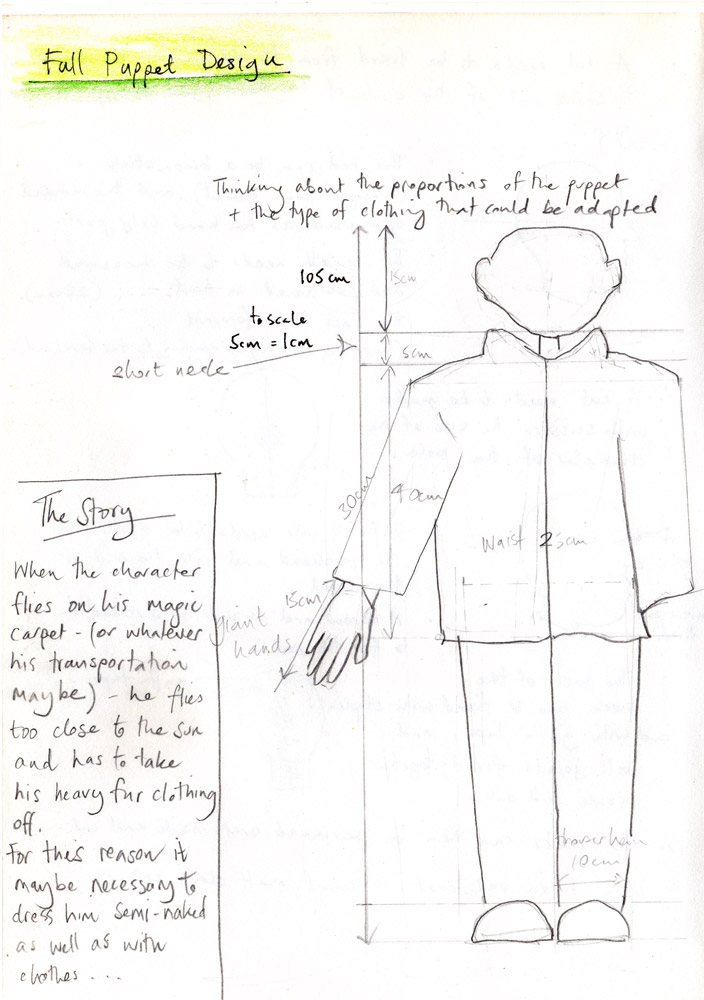 Full Puppet Design
Thinking about the proportions of the puppet
+ the type of clothing that could be adapted
105cm
15cm
to scale
5cm = 1cm
5cm
short neck
30cm
40cm
Waist 25cm
15cm
giant
hands
trouser hem
10cm
The Story
When the character
flies on his magic
carpet - (or whatever
his transportation
maybe) - he flies
too close to the sun
and has to take
his heavy fur clothing
off.
For this reason it
maybe necessary to
dress him semi-naked
as well as with
clothes . . .